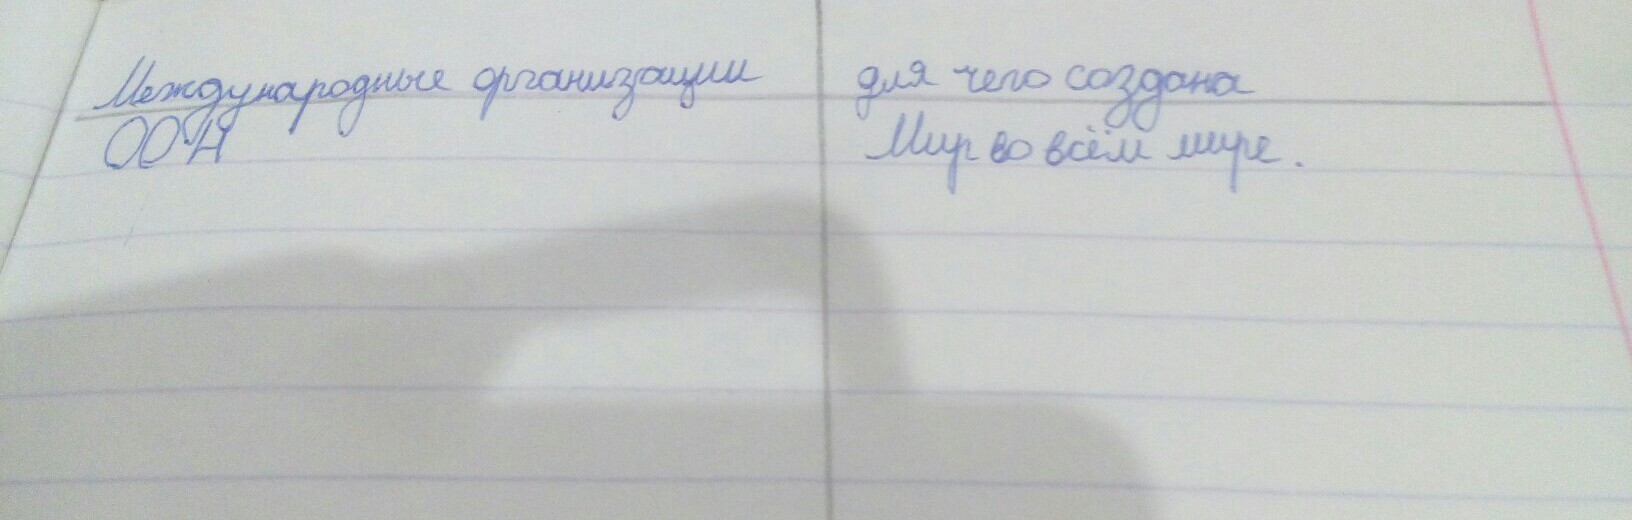 Международные организации для чего создана
ООН Мир во всём мире.